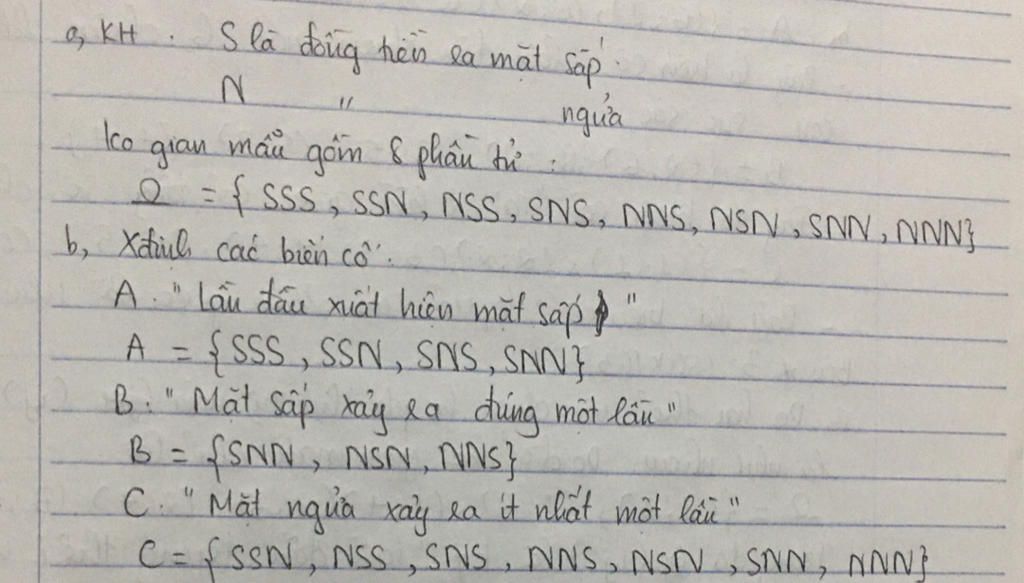 a, KH : S là đồng tiền ra mặt sấp
N " ngửa
Ko gian mẫu gồm 8 phần tử :
Ω = { SSS , SSN , NSS , SNS , NNS, NSN , SNN , NNN}
b, Xđịnh các biến cố :
A : "Lần đầu xuất hiện mặt sấp"
A = {SSS , SSN , SNS, SNN}
B : "Mặt sấp xảy ra đúng một lần"
B = {SNN , NSN , NNS}
C : "Mặt ngửa xảy ra ít nhất một lần"
C = { SSN , NSS , SNS , NNS , NSN , SNN , NNN}